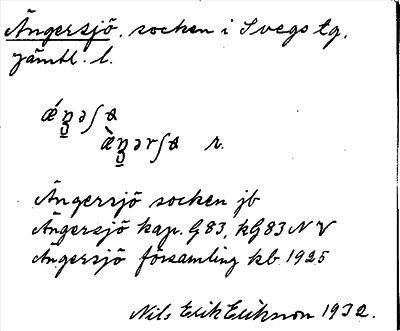 Ängersjö, socken i Svegs tg,
jämtl. l.
r.
Ängersjö socken jb
Ängersjö kap. G83, kG83NV
Ängersjö församling kb 1925
Nils Erik Eriksson 1932.